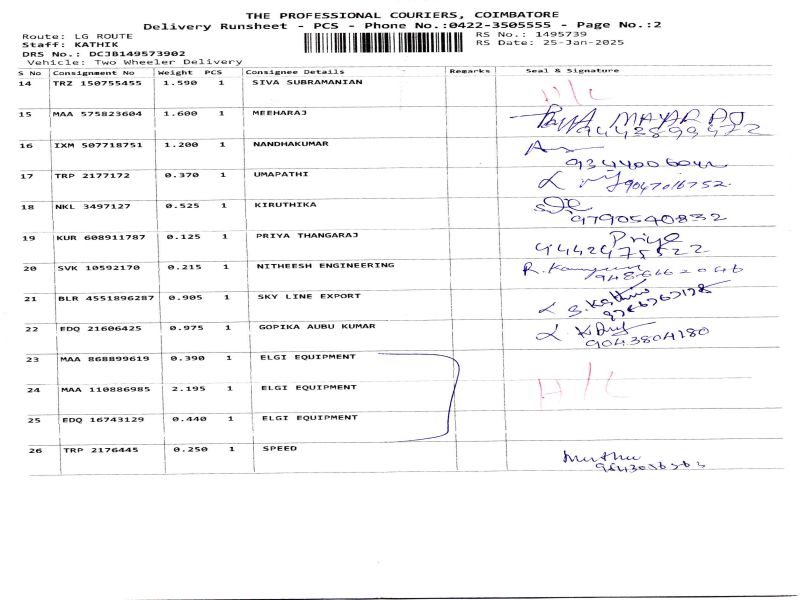 THE PROFESSIONAL COURIERS, COIMBATORE
Delivery Runsheet - PCS - Phone No.:0422-3505555 - Page No.:2
Route: LG ROUTE RS No.: 1495739
Staff: KATHIK RS Date: 25-Jan-2025
DRS No.: DCJB149573902
Vehicle: Two Wheeler Delivery
S No Consignment No Weight PCS Consignee Details Remarks Seal & Signature
14 TRZ 150755455 1.590 1 SIVA SUBRAMANIAN H/C
15 MAA 575823604 1.600 1 MEEHARAJ
16 IXM 507718751 1.200 1 NANDHAKUMAR
17 TRP 2177172 0.370 1 UMAPATHI 9047016752
18 NKL 3497127 0.525 1 KIRUTHIKA 9790540832
19 KUR 608911787 0.125 1 PRIYA THANGARAJ Priya
9442475522
20 SVK 10592170 0.215 1 NITHEESH ENGINEERING
21 BLR 4551896287 0.905 1 SKY LINE EXPORT
22 EDQ 21606425 0.975 1 GOPIKA AUBU KUMAR 9043804180
23 MAA 868899619 0.390 1 ELGI EQUIPMENT
24 MAA 110886985 2.195 1 ELGI EQUIPMENT H/C
25 EDQ 16743129 0.440 1 ELGI EQUIPMENT
26 TRP 2176445 0.250 1 SPEED Muthu